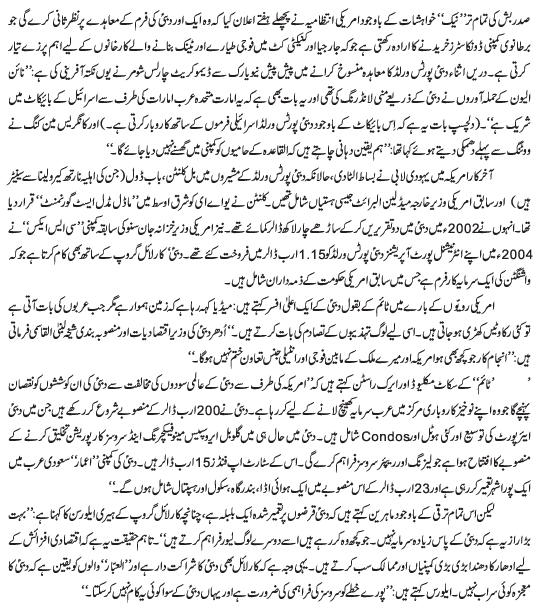 صدر بش کی تمام تر "نیک" خواہشات کے باوجود امریکی انتظامیہ نے پچھلے ہفتے اعلان کیا کہ وہ ایک اور دبئی کی فرم کے معاہدے پر نظر ثانی کرے گی جو
برطانوی کمپنی ڈونکاسٹرز خریدنے کا ارادہ رکھتی ہے جو کہ جارجیا اور کنیکٹی کٹ میں فوجی طیارے اور ٹینک بنانے والے کارخانوں کے لیے اہم پرزے تیار
کرتی ہے۔ دریں اثناء دبئی پورٹس ورلڈ کا معاہدہ منسوخ کرانے میں پیش پیش نیویارک سے ڈیموکریٹ چارلس شومر نے یوں نکتہ آفرینی کی ہے: "نائن
الیون کے حملہ آوروں نے دبئی کے ذریعے منی لانڈرنگ کی تھی اور یہ بات بھی ہے کہ یہ امارت متحدہ عرب امارات کی طرف سے اسرائیل کے بائیکاٹ میں
شریک ہے"۔ (دلچسپ بات یہ ہے کہ اس بائیکاٹ کے باوجود دبئی پورٹس ورلڈ اسرائیلی فرموں کے ساتھ کاروبار کرتی ہے۔) اور کانگریس مین کنگ نے
ووٹنگ سے پہلے دھمکی دیتے ہوئے کہا تھا: "ہم یقین دہانی چاہتے ہیں کہ القاعدہ کے حامیوں کو کمپنی میں گھسنے نہیں دیا جائے گا۔"
آخر کار امریکہ میں یہودی لابی نے بساط الٹا دی، حالانکہ دبئی پورٹس ورلڈ کے مشیروں میں بل کلنٹن، باب ڈول (جن کی اہلیہ نارتھ کیرولینا سے سینیٹر
ہیں) اور سابق امریکی وزیر خارجہ میڈلین البرائٹ جیسی ہستیاں شامل تھیں۔ کلنٹن نے یو اے ای کو شرق اوسط میں "ماڈل مڈل ایسٹ گورنمنٹ" قرار دیا
تھا۔ انہوں نے 2002ء میں دبئی میں دو تقریریں کر کے ساڑھے چار لاکھ ڈالر کمائے تھے۔ نیز امریکی وزیر خزانہ جان سنو کی سابقہ کمپنی "سی ایس ایکس" نے
2004ء میں اپنے انٹرنیشنل پورٹ آپریشنز دبئی پورٹس ورلڈ کو 1.15 ارب ڈالر میں فروخت کئے تھے۔ دبئی کارلائل گروپ کے ساتھ بھی کام کرتا ہے جو کہ
واشنگٹن کی ایک سرمایہ کار فرم ہے جس میں سابق امریکی حکومت کے ذمہ داران شامل ہیں۔
امریکی رویوں کے بارے میں ٹائم کے بقول دبئی کے ایک اعلیٰ افسر کہتے ہیں: میڈیا کہہ رہا ہے کہ زمین ہموار ہے مگر جب عربوں کی بات آتی ہے
تو کئی رکاوٹیں کھڑی ہو جاتی ہیں۔ اسی لیے لوگ تہذیبوں کے تصادم کی بات کرتے ہیں۔" اُدھر دبئی کی وزیر اقتصادیات اور منصوبہ بندی شیخہ لبنیٰ القاسمی فرماتی
ہیں: "انجام کار جو کچھ بھی ہو امریکہ اور میرے ملک کے مابین فوجی اور انٹیلی جنس تعاون ختم نہیں ہوگا۔"
' 'ٹائم" کے سکاٹ میکلیوڈ اور ایرک راسٹن کہتے ہیں کہ "امریکہ کی طرف سے دبئی کے عالمی سودوں کی مخالفت سے دبئی کی ان کوششوں کو نقصان
پہنچے گا جو وہ اپنے نوخیز کاروباری مرکز میں عرب سرمایہ کھینچ لانے کے لیے کر رہا ہے۔ دبئی نے 200 ارب ڈالر کے منصوبے شروع کر رکھے ہیں جن میں دبئی
ایئرپورٹ کی توسیع اور کئی ہوٹل اور Condos شامل ہیں۔ دبئی میں حال ہی میں گلوبل ایروسپیس مینوفیکچرنگ اینڈ سروسز کارپوریشن تخلیق کرنے کے
منصوبے کا افتتاح ہوا ہے جو لیزنگ اور ریپئر سروسز فراہم کرے گی۔ اس کے سٹارٹ اپ فنڈز 15 ارب ڈالر ہیں۔ دبئی کی کمپنی "اعمار" سعودی عرب میں
ایک پورا شہر تعمیر کر رہی ہے اور 23 ارب ڈالر کے اس منصوبے میں ایک ہوائی اڈا، بندرگاہ، سکول اور ہسپتال شامل ہوں گے۔"
لیکن اس تمام ترقی کے باوجود ماہرین کہتے ہیں کہ دبئی قرضوں پر تعمیر شدہ ایک بلبلہ ہے، چنانچہ کارلائل گروپ کے ہیری ایلورسن کا کہنا ہے: "بہت
بڑا راز یہ ہے کہ دبئی کے پاس زیادہ سرمایہ نہیں۔ جو کچھ وہ کر رہے ہیں اسے دوسرے لوگ لیور فراہم کرتے ہیں"۔ تاہم حقیقت یہ ہے کہ اقتصادی افزائش کے
لیے ادھار کا دھندا بڑی بڑی کمپنیاں اور ممالک سب کرتے ہیں۔ یہی وجہ ہے کہ کارلائل بھی دبئی کا شراکت دار ہے اور "العبار" والوں کو یقین ہے کہ دبئی کا
معجزہ کوئی سراب نہیں۔ ایلورسن کہتے ہیں: "پورے خطے کو سروسز کی فراہمی کی ضرورت ہے اور یہاں دبئی کے سوا کوئی یہ کام نہیں کر سکتا۔"